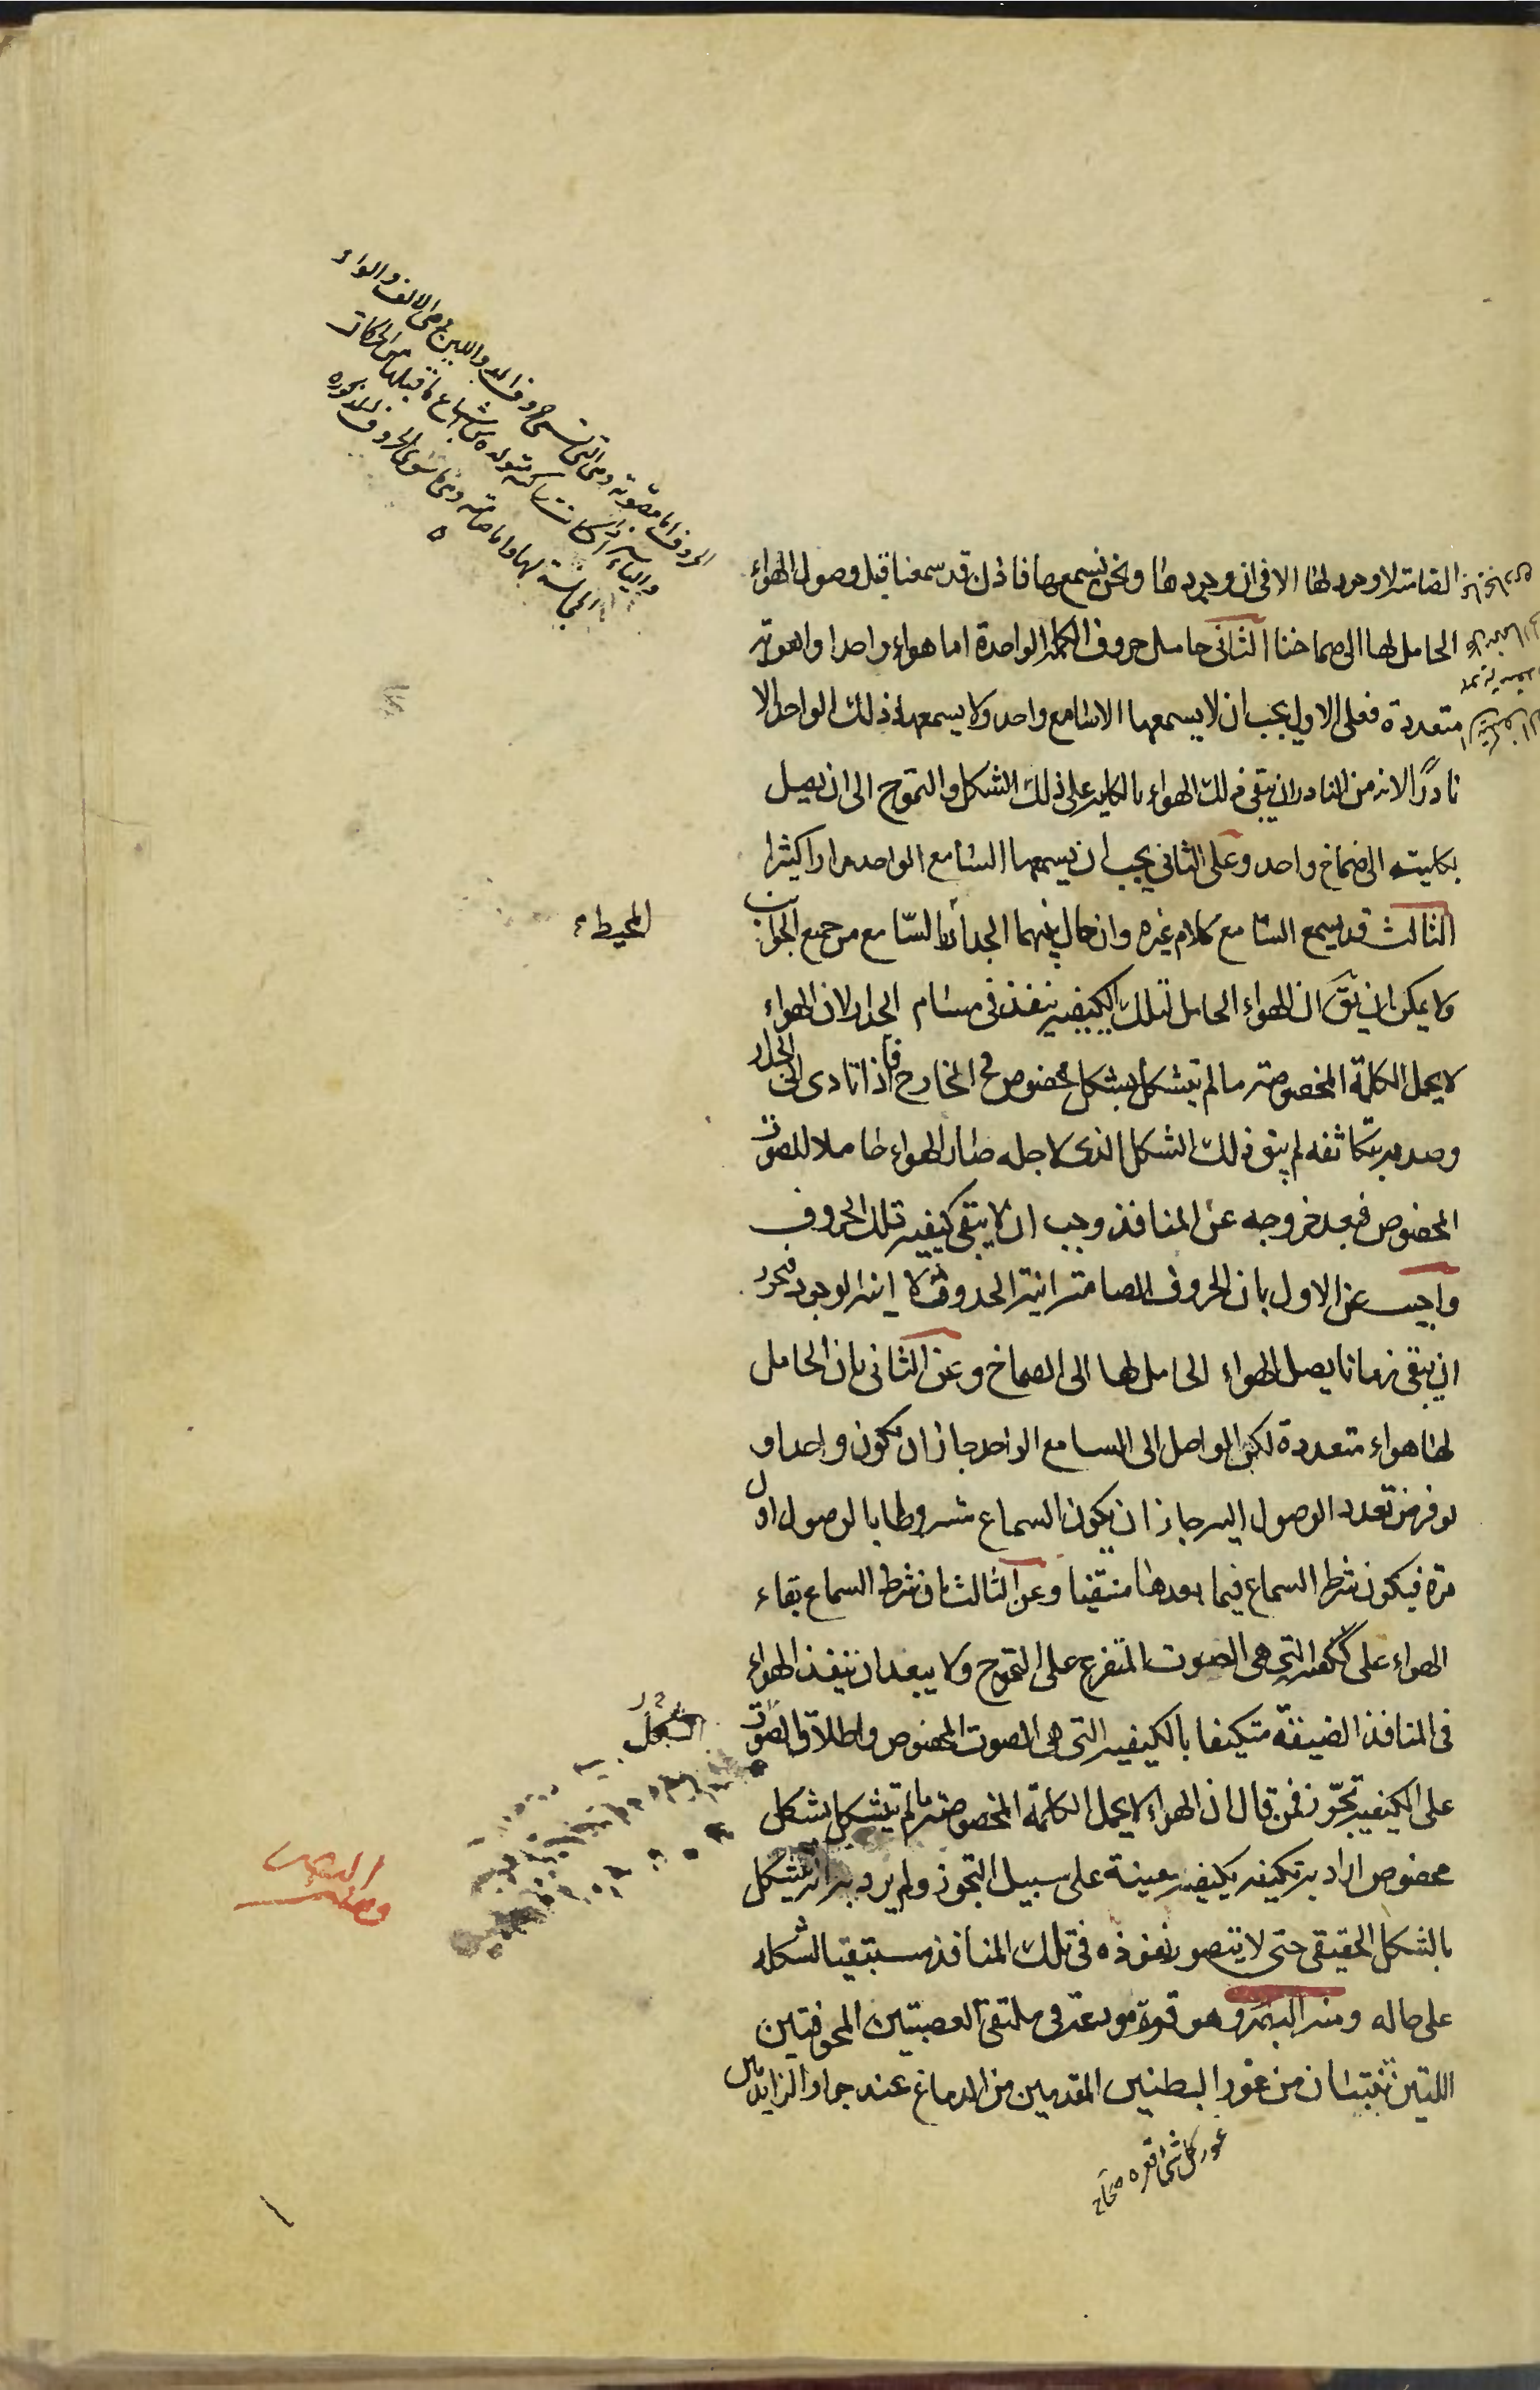 الصامتة لا وجود لها الا فى ان وجودها ونحن نسمعها فاذن قد سمعنا قبل وصول الهواء
الحامل لها الى صماخنا الثانى حامل حروف الكلمة الواحدة اما هواء واحد او اهوية
متعددة فعلى الاول يجب ان لا يسمعها الا سامع واحد ولا يسمعها ذلك الواحد الا
نادرًا لانه من النادر ان يبقى ذلك الهواء بالكلية على ذلك الشكل والتموج الى ان يصل
بكليته الى صماخ واحد وعلى الثانى يجب ان يسمعها السامع الواحد مرارا كثيرا
الثالث قد يسمع السامع كلام غيره وان حال بينهما الجدار بالسامع من جميع الجوانب
المحيط
ولا يمكن ان يق ان الهواء الحامل لتلك الكيفية ينفذ فى مسام الجدار لان الهواء
لا يحمل الكلمة المخصوصة ما لم يتشكل بشكل مخصوص فى المخارج فاذا تادى الى الجدار
وصدمه بتكاثفه لم يبق ذلك الشكل الذى لاجله صار الهواء حاملا للصوت
المخصوص فبعد خروجه عن المنافذ وجب ان لا يبقى كيفية تلك الحروف
واجيب عن الاول بان الحروف الصامتة انية الحدوث لا انية الوجود فيجوز
ان يبقى زمانا يصل الهواء الحامل لها الى الصماخ وعن الثانى بان الحامل
لها هواء متعددة لكن الواصل الى السامع الواحد جاز ان يكون واحدا و
لو فرض تعدد الوصول اليه جاز ان يكون السماع مشروطا بالوصول اول
مرة فيكون شرط السماع فيما بعدها منتفيا وعن الثالث بان شرط السماع بقاء
الهواء على كيفيته التى هى الصوت المتفرع على التموج ولا يبعد ان ينفذ الهواء
فى المنافذ الضيقة متكيفا بالكيفية التى هى الصوت المخصوص واطلاق الصوت
الشكل
على الكيفية تجوّز فمن قال ان الهواء لا يحمل الكلمة المخصوصة ما لم يتشكل بشكل
مخصوص اراد به تكيفه بكيفية معينة على سبيل التجوز ولم يرد به انه يتشكل
بالشكل الحقيقى حتى لا يتصور نفوذه فى تلك المنافذ مستبقيا لشكله
على حاله ومنه البصر وهو قوة مودعة فى ملتقى العصبتين المجوفتين
اللتين تنبتان من غور البطنين المقدمين من الدماغ عند جوار الزايدتين
غور كل شئ قعره صحاح
الحروف اما مصوتة وهى التى تسمى حروف المد واللين وهى الالف والواو
والياء اذا كانت ساكنة متولدة من اشباع ما قبلها من الحركات
المجانسة لها واما صامتة وهى ما سوى الحروف المذكورة
البصر